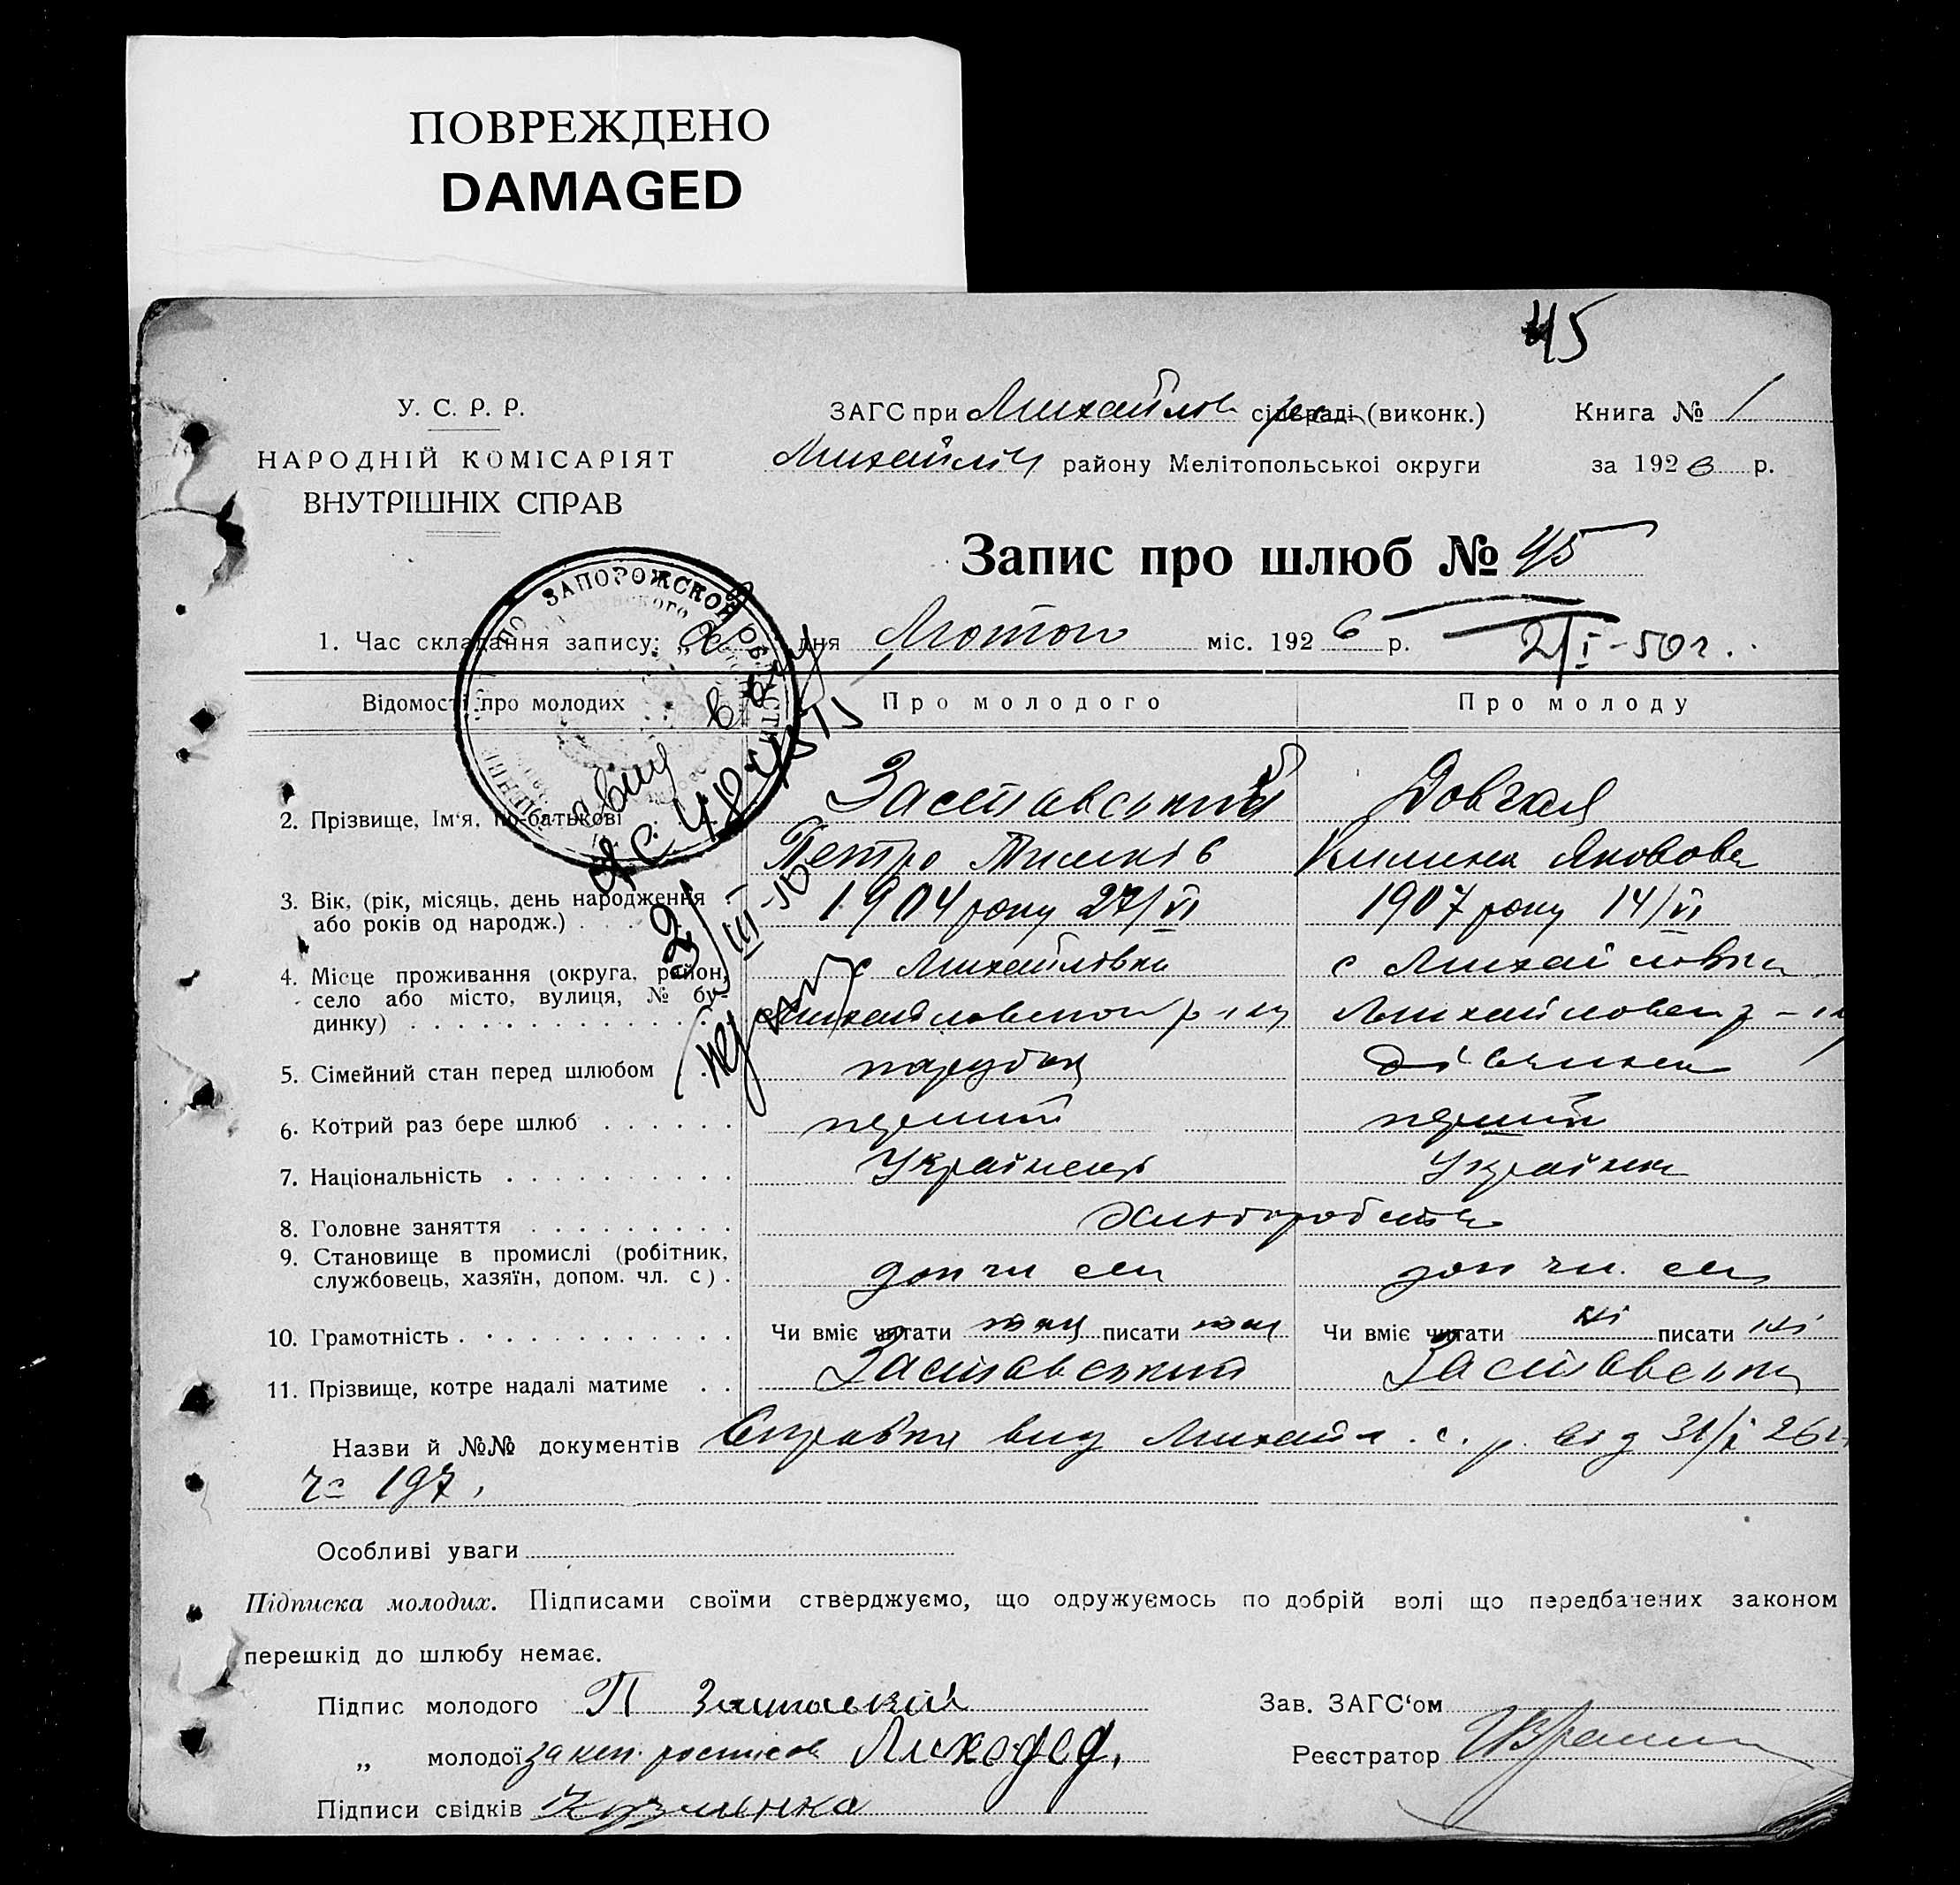 ПОВРЕЖДЕНО
DAMAGED
45
У. С. Р. Р.
НАРОДНІЙ КОМІСАРІЯТ
ВНУТРІШНІХ СПРАВ
ЗАГС при Михайлов сільраді (виконк.) Книга № 1
Михайлів району Мелітопольської округи за 1926 р.
Запис про шлюб № 45
1. Час складання запису: „ дня Лютого міс. 1926 р. 2/I-50 г.
ЗАПОРОЖСКОЙ ОБЛАСТИ
Відомості про молодих Про молодого Про молоду
2. Прізвище, Ім'я, по-батькові Заставський Довгая
Петро Тимків Килина Яковова
3. Вік, (рік, місяць, день народження 1904 року 27/VI 1907 року 14/VI
або років од народж.)
4. Місце проживання (округа, район, с Михайлівка с Михайловка
село або місто, вулиця, № бу-
динку) Михайловского р-ну Михайловск р-ну
5. Сімейний стан перед шлюбом парубок дівчина
6. Котрий раз бере шлюб перший перший
7. Національність Українець Українка
8. Головне заняття Хліборобство
9. Становище в промислі (робітник,
службовець, хазяїн, допом. чл. с). доп чл см доп чл. см
10. Грамотність Чи вміє читати так писати так Чи вміє читати ні писати ні
11. Прізвище, котре надалі матиме Заставський Заставська
Назви й №№ документів Справка вид Михайл. с. р. від 31/I 26 г.
чс 197.
Особливі уваги
Підписка молодих. Підписами своїми стверджуємо, що одружуємось по добрій волі що передбачених законом
перешкід до шлюбу немає.
Підпис молодого П Заставский Зав. ЗАГС'ом
„ молодої за неп. росписов Лиходед. Реєстратор
Підписи свідків Кузменко